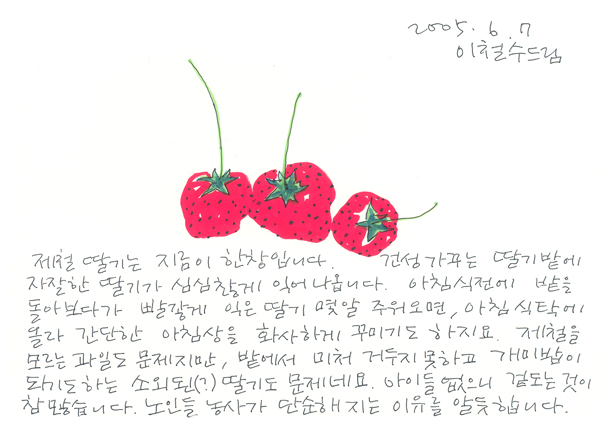 2005. 6. 7
이철수드림
제철 딸기는 지금이 한창입니다. 건성가꾸는 딸기밭에
자잘한 딸기가 심심찮게 익어나옵니다. 아침식전에 밭을
돌아보다가 빨갛게 익은 딸기 몇알 주워오면, 아침 식탁에
올라 간단한 아침상을 화사하게 꾸미기도 하지요. 제철을
모르는 과일도 문제지만, 밭에서 미처 거두지못하고 개미밥이
되기도하는 소외된(?) 딸기도 문제네요. 아이들 없으니 겉도는 것이
참 많습니다. 노인들 농사가 단순해지는 이유를 알듯합니다.